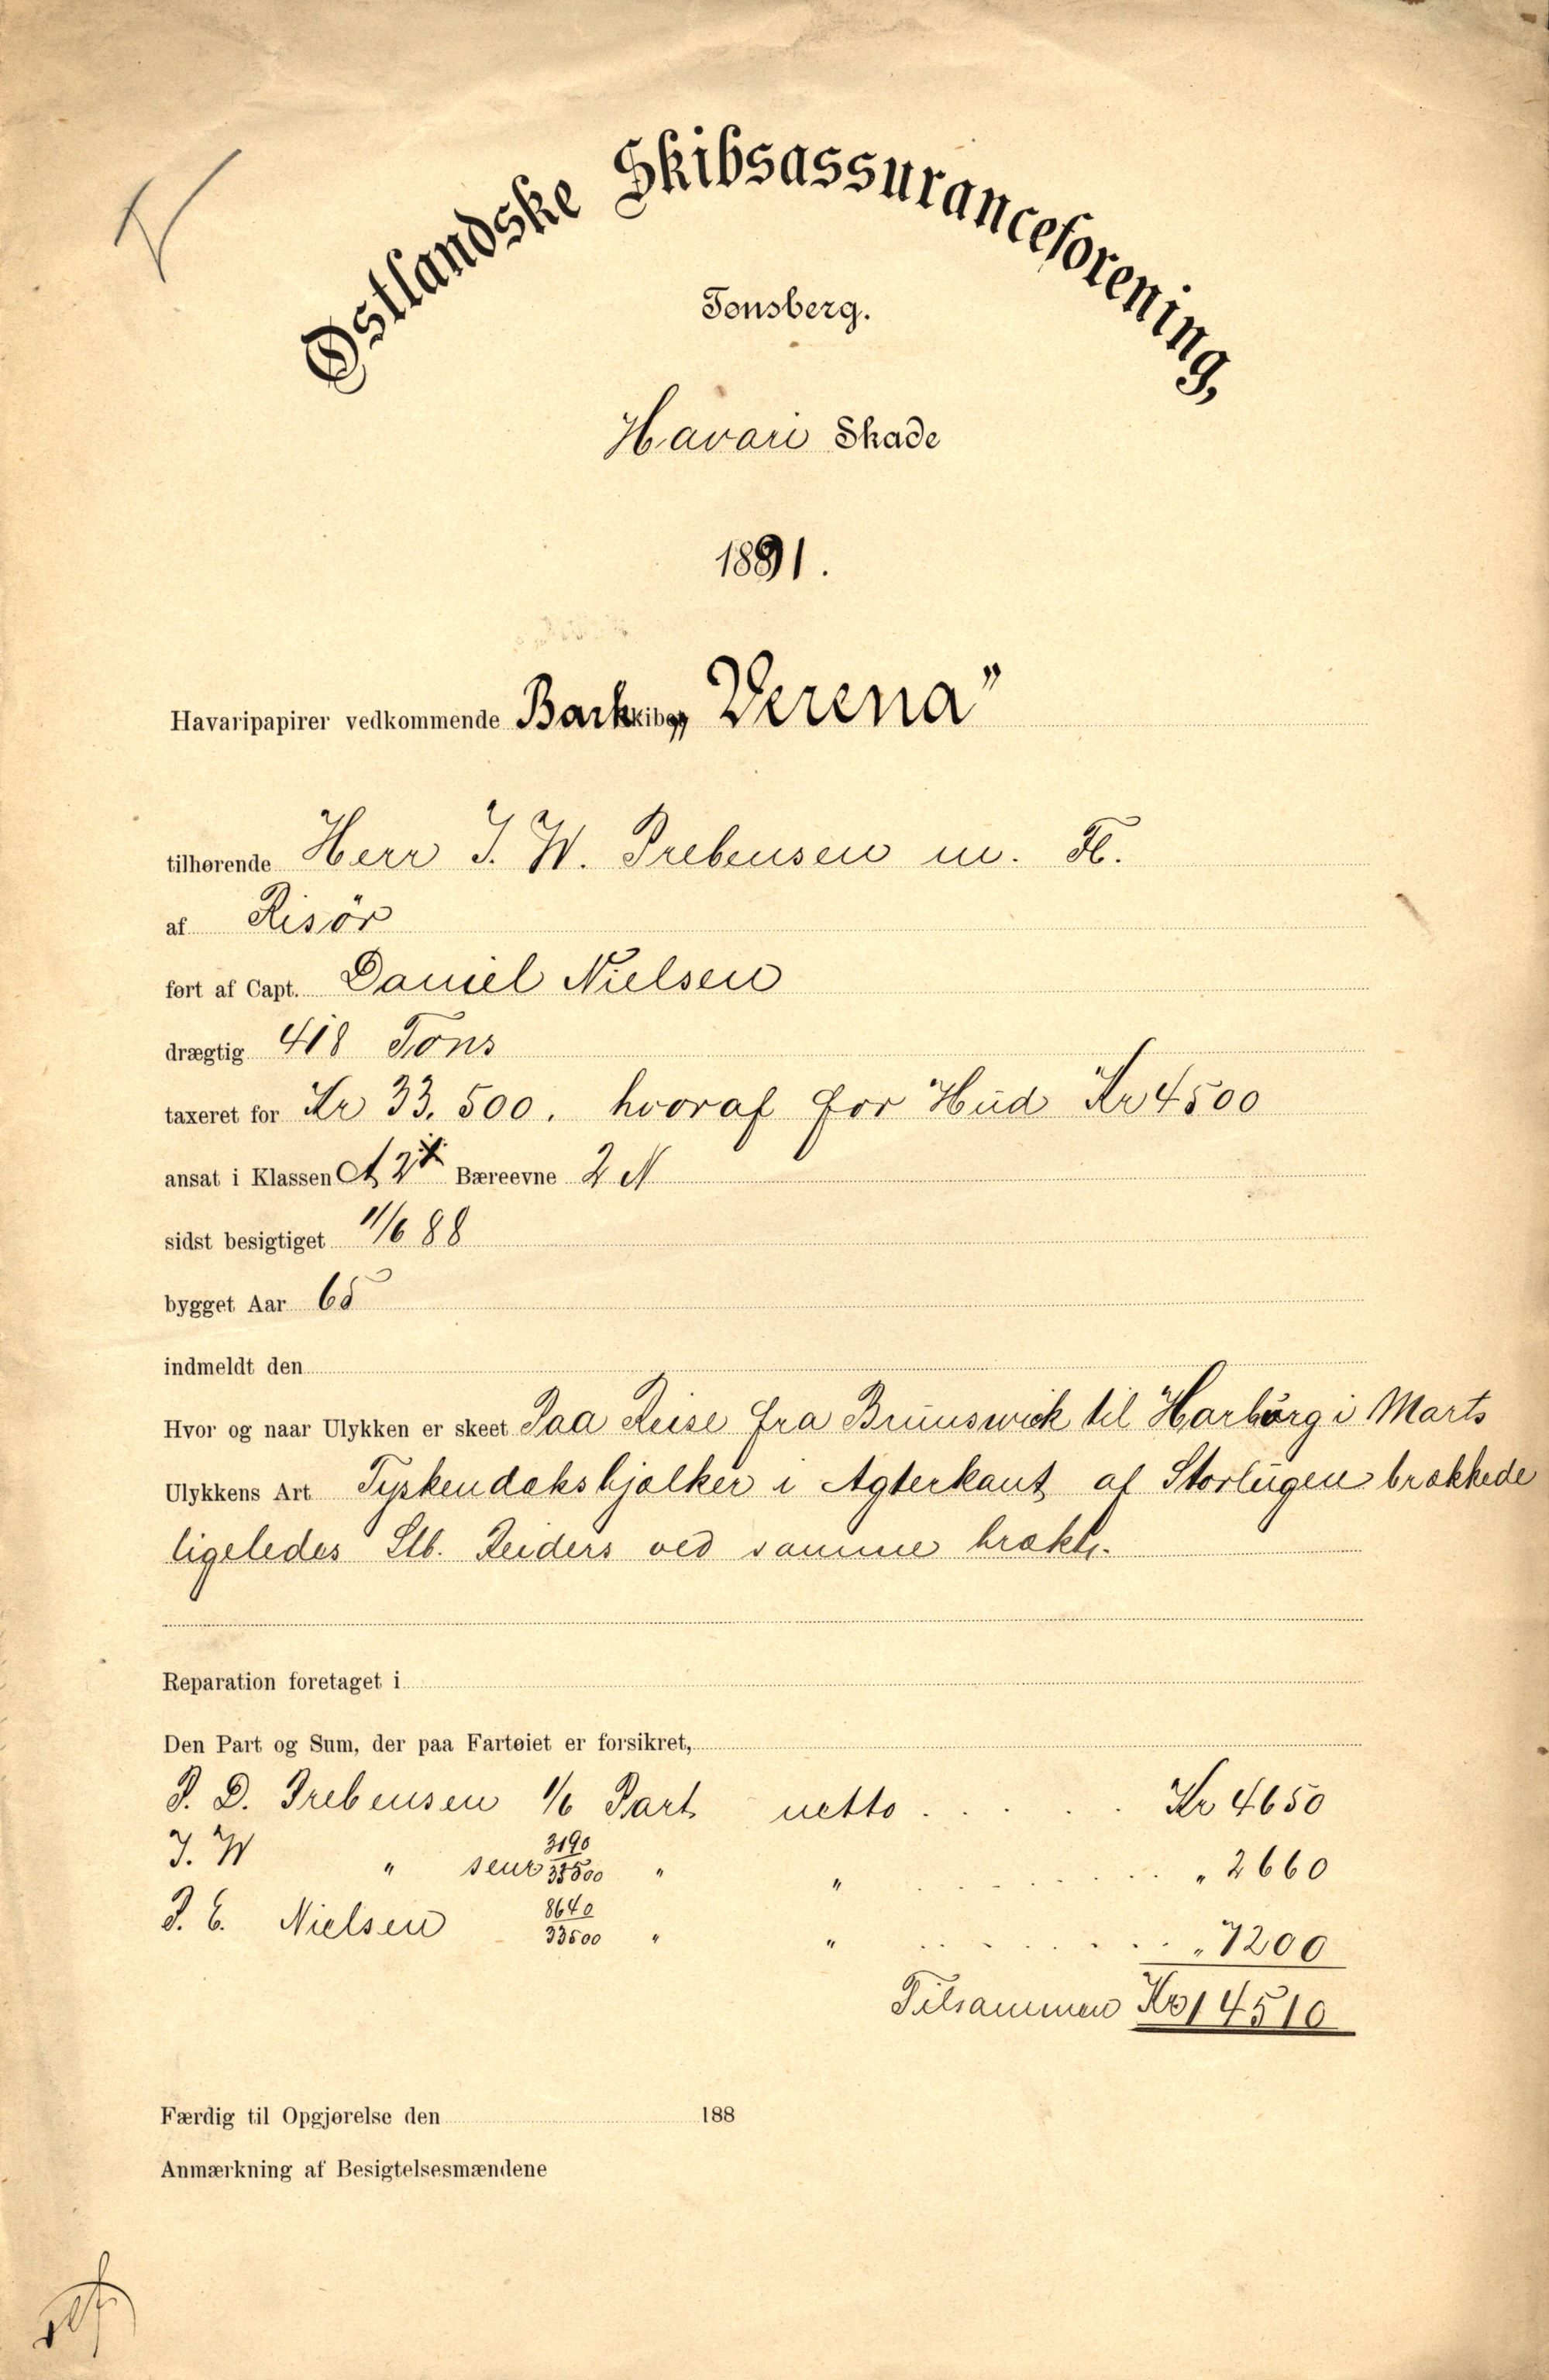 Østlandske Skibsassuranceforening,
Tønsberg.
Havari Skade
1891.
Havaripapirer vedkommende Bark skibet „Verena”
tilhørende Herr J. W. Prebensen m. Fl.
af Risör
ført af Capt. Daniel Nielsen
drægtig 418 Tons
taxeret for Kr 33.500. hvoraf for Hud Kr 4500
ansat i Klassen A 2 Bæreevne 2 N
sidst besigtiget 11/6 88
bygget Aar 65
indmeldt den
Hvor og naar Ulykken er skeet Paa Reise fra Brunswick til Harburg i Marts
Ulykkens Art Tyskendæksbjælker i Agterkant af Storlugen brækkede
ligeledes Stb. ved samme brækk.
Reparation foretaget i
Den Part og Sum, der paa Fartøiet er forsikret,
P. D. Prebensen 1/6 Part netto . . . . . Kr 4650
J. W " senr 3190/33500 " " . . . . . " 2660
P. C. Nielsen 8640/33500 " " . . . . . " 7200
Tilsammen Kr 14510
Færdig til Opgjørelse den 188
Anmærkning af Besigtelsesmændene